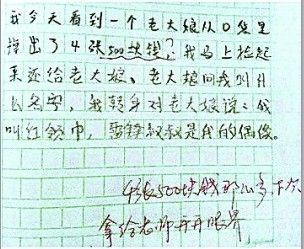 我今天看到一个老大娘从口袋里
掉出了4张500块钱，我马上捡起
来还给老大娘、老大娘问我叫什
么名字，我转身对老大娘说：我
叫红领巾，雷锋叔叔是我的偶像。
4张500块钱那么多下次
拿给老师开开眼界